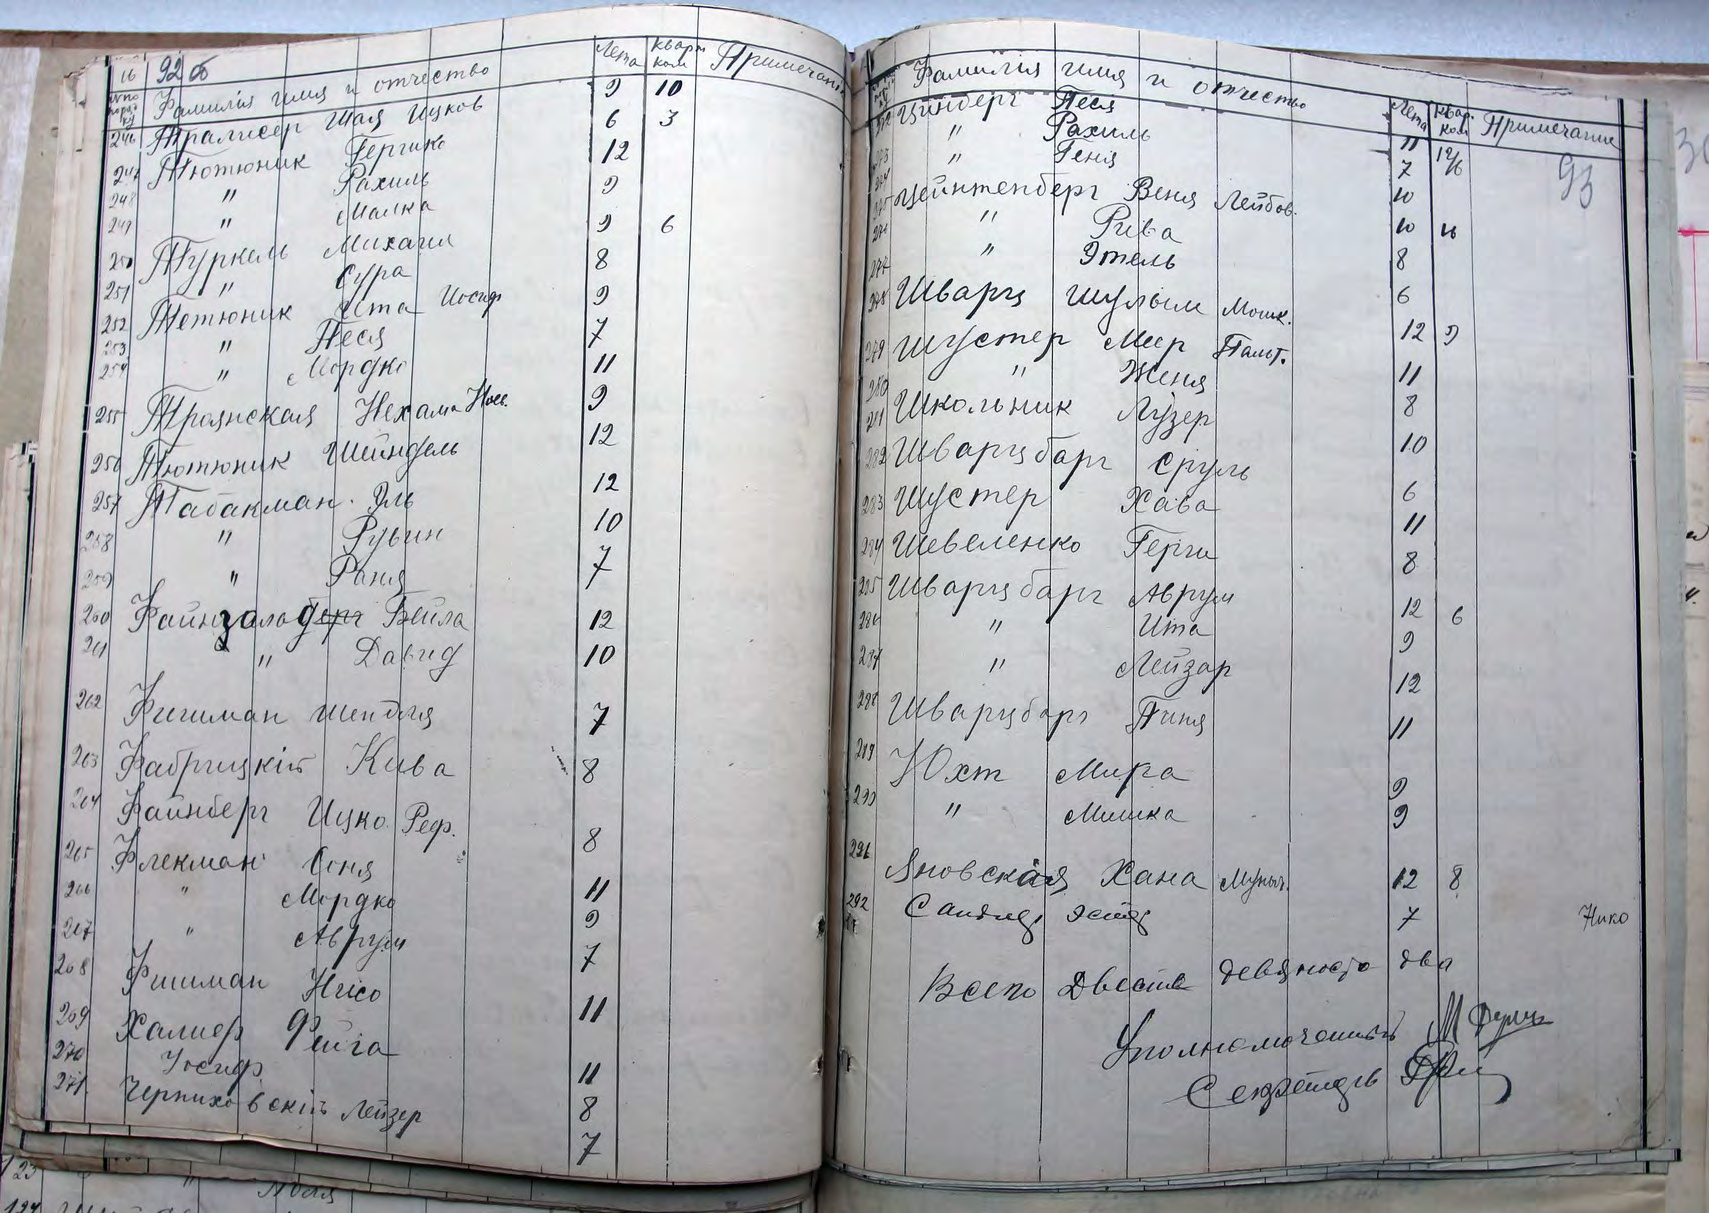 16 92 об
№ по поряд. Фамилія имя и отчество Лета кварт ком Примечан.
246 Тралисер Шая Ицков 9 10
247 Тютюник Гершко 6 3
248 " Рахиль 12
249 " Малка 9
250 Туркель Михаил 9 6
251 " Сура 8
252 Тютюник Ита Иосиф 9
253 " Песя 7
254 " Мордко 11
255 Троянская Нехама Носс. 9
256 Тютюник Шейндель 12
257 Табакман Иль 12
258 " Рувин 10
259 " Раня 7
260 Файнзалоберг Бейла 12
261 " Давид 10
262 Фишман Шендля 7
263 Фабрицкій Кива 8
264 Файнберг Ицко Реф. 8
265 Флекман Соня 11
266 " Мордко 9
267 " Аврум 7
268 Фишман Нисо 11
269 Халиф Фейга 11
270 Иосиф 8
271 Черниховскій Лейзер 7
123 "
124
Фамилія имя и отчество Лета квар. ком Примечание
93
272 Цинберг Песя 11 12/6
273 " Рахиль 7
274 " Геня 10
275 Цейнтенберг Веня Лейбов. 10 16
276 " Рива 8
277 " Этель 6
278 Шварц Шулым Мошк. 12 9
279 Шустер Меер Пальт. 11
280 " Женя 8
281 Школьник Лузер 10
282 Шварцбарг Сруль 6
283 Шустер Хава 11
284 Шевеленко Герш 8
285 Шварцбарг Аврум 12 6
286 " Ита 9
287 " Лейзар 12
288 Шварцбарг Пиня 11
289 Юхт Мира 9
290 " Милика 9
291 Яновская Хана Муныч. 12 8
292 Эстер 7
Нико
Всего Двести девяносто два
Уполномоченный М
Секретарь